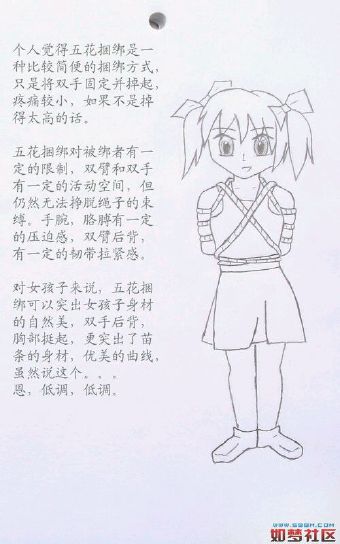 个人觉得五花捆绑是一
种比较简便的捆绑方式，
只是将双手固定并掉起，
疼痛较小，如果不是掉
得太高的话。
五花捆绑对被绑者有一
定的限制，双臂和双手
有一定的活动空间，但
仍然无法挣脱绳子的束
缚。手腕，胳膊有一定
的压迫感，双臂后背，
有一定的韧带拉紧感。
对女孩子来说，五花捆
绑可以突出女孩子身材
的自然美，双手后背，
胸部挺起，更突出了苗
条的身材，优美的曲线，
虽然说这个。。。
恩，低调，低调。
如梦社区